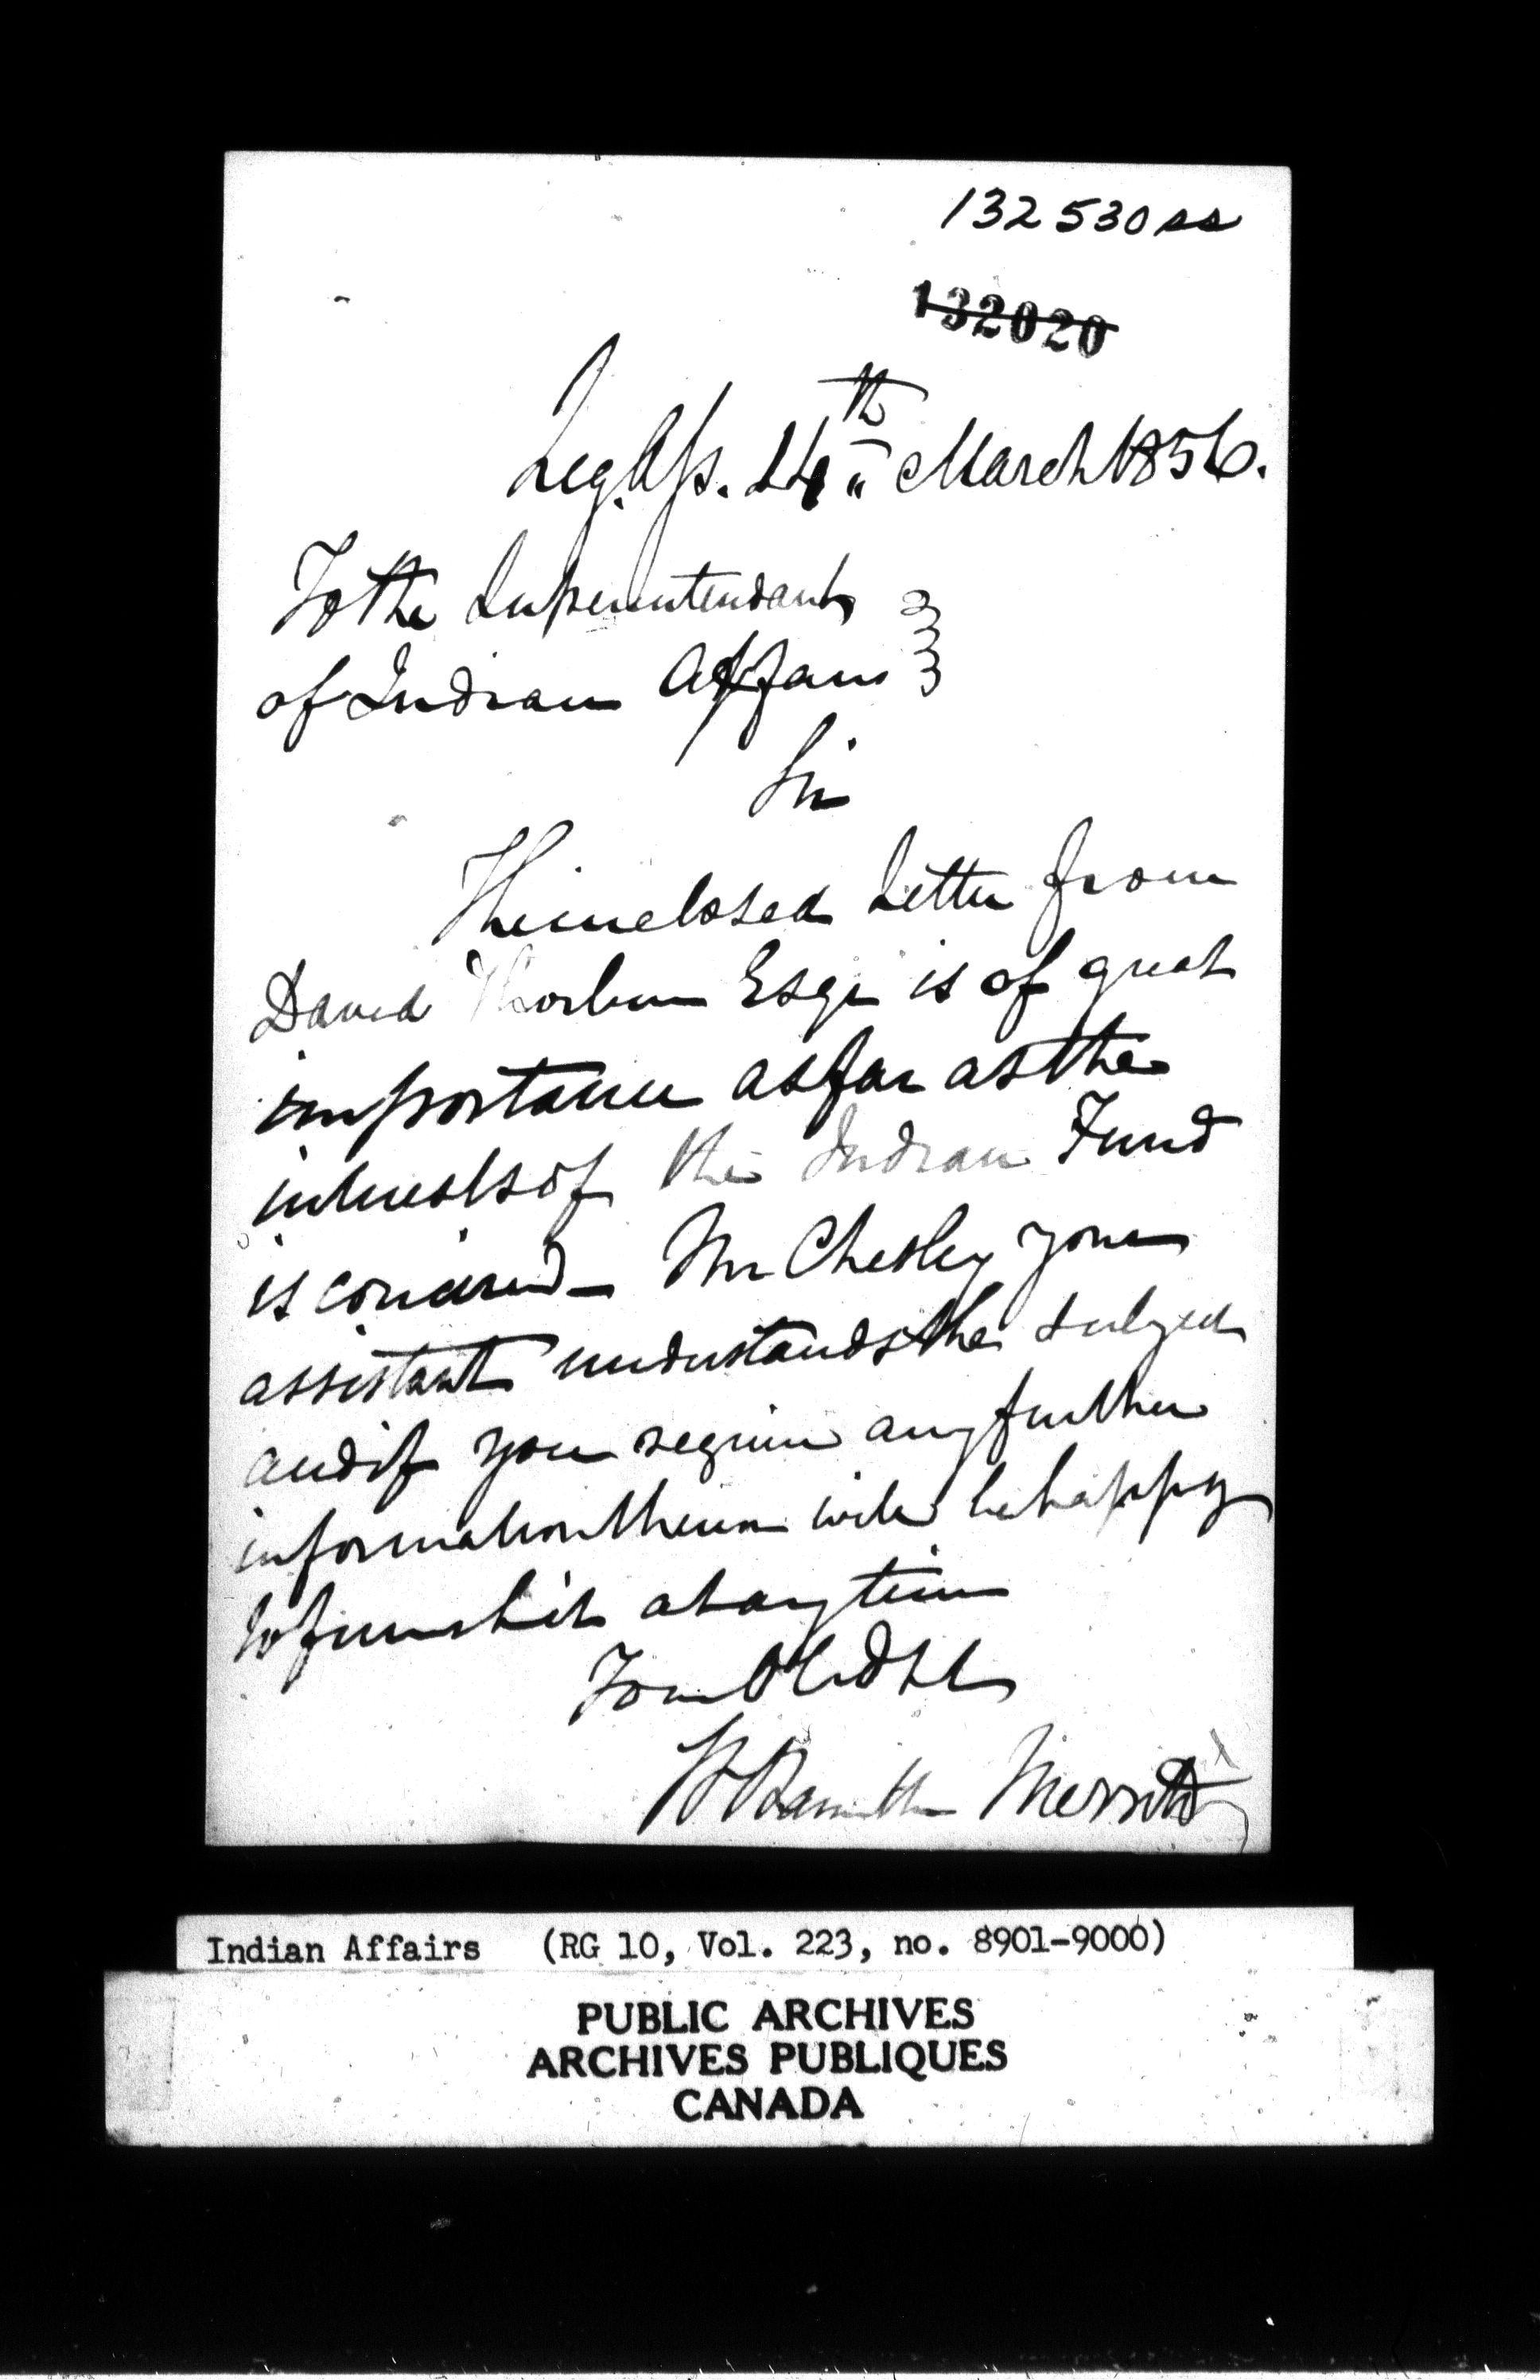 132530ss
132020
Leg. Ass. 14th March 1856.
To the Superintendant
of Indian Affairs
Sir
The inclosed Letter from
David Thorburn Esqr is of great
importance as far as the
interests of the Indian Fund
is concerned – Mr Chesley your
assistant understands the subject
and if you require any further
information therein will be happy
to furnish it at any time
Your Obedt
W Hamilton Merritt
Indian Affairs (RG 10, Vol. 223, no. 8901-9000)
PUBLIC ARCHIVES
ARCHIVES PUBLIQUES
CANADA